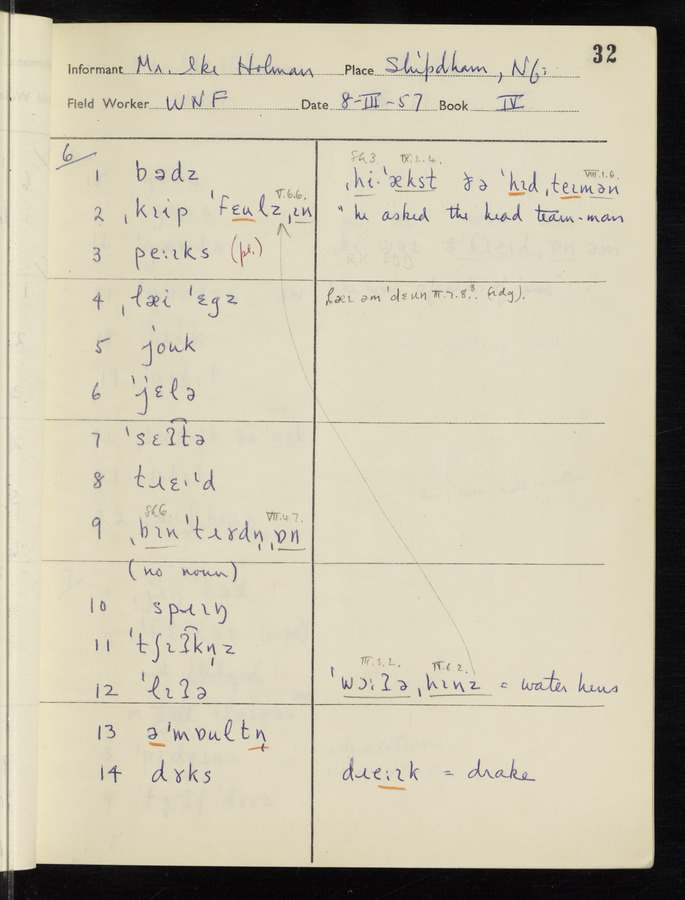 32
Informant Mr. Ike Holman Place Shipdham, Nf:
Field Worker WNF Date 8-III-57 Book IV
6
1 bədz
V.6.6.
2 ˌkɪip ˈfɛulz ˌɪn
3 pe:ɪks (pl.)
4 ˌlæi ˈɛgz
5 jouk
6 ˈjɛlə
7 ˈsɛʔt͡ə
8 tɹɛ.ˈd
8h6 VII.4.7.
9 ˌbɪn ˈtɹɤdn̩ ˌɒn
(no noun)
10 spɹɪŋ
11 ˈtʃɪʔ͡kn̩z
12 ˈlɪʔə
13 əˈmɒultn̩
14 dɤks
8h3. IX.2.4. VIII.1.6.
ˌhi.ˈækst ðə ˈhɪd ˌteɪmən
" he asked the head team-man
læɪ əmˈdɛun II.7.8.⁸. (rdg).
III.3.2. IV.6.2.
ˈwɔ:ʔə ˌhɪnz = water hens
dɹe:ɪk = drake